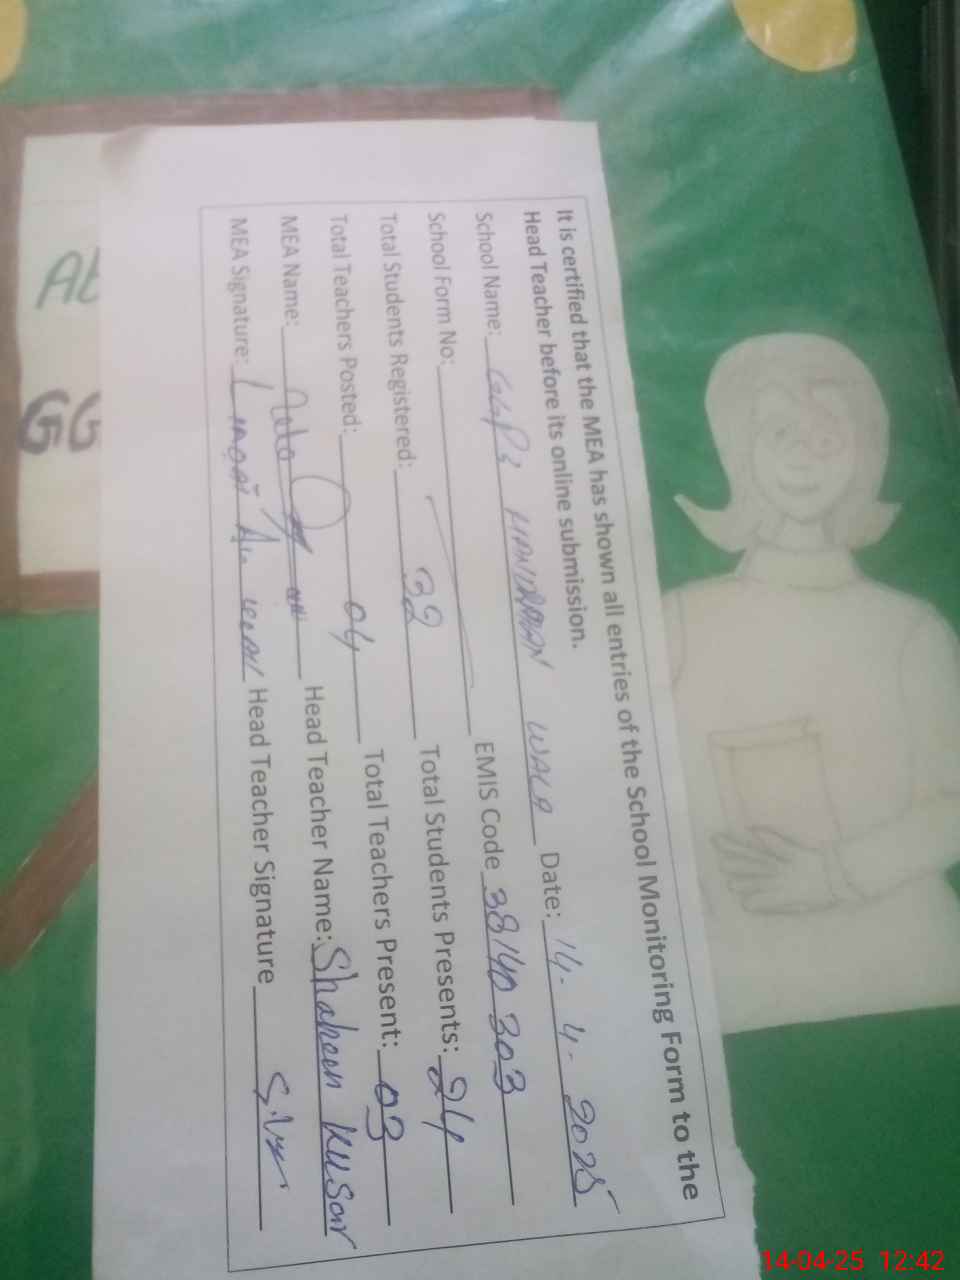 It is certified that the MEA has shown all entries of the School Monitoring Form to the
Head Teacher before its online submission.
School Name: GGPS WALA Date: 14-4-2025
School Form No: EMIS Code 38140303
Total Students Registered: 32 Total Students Presents: 24
Total Teachers Posted: 04 Total Teachers Present: 03
MEA Name: Head Teacher Name: Shaheen Kusar
MEA Signature: Head Teacher Signature
GG
14-04-25 12:42